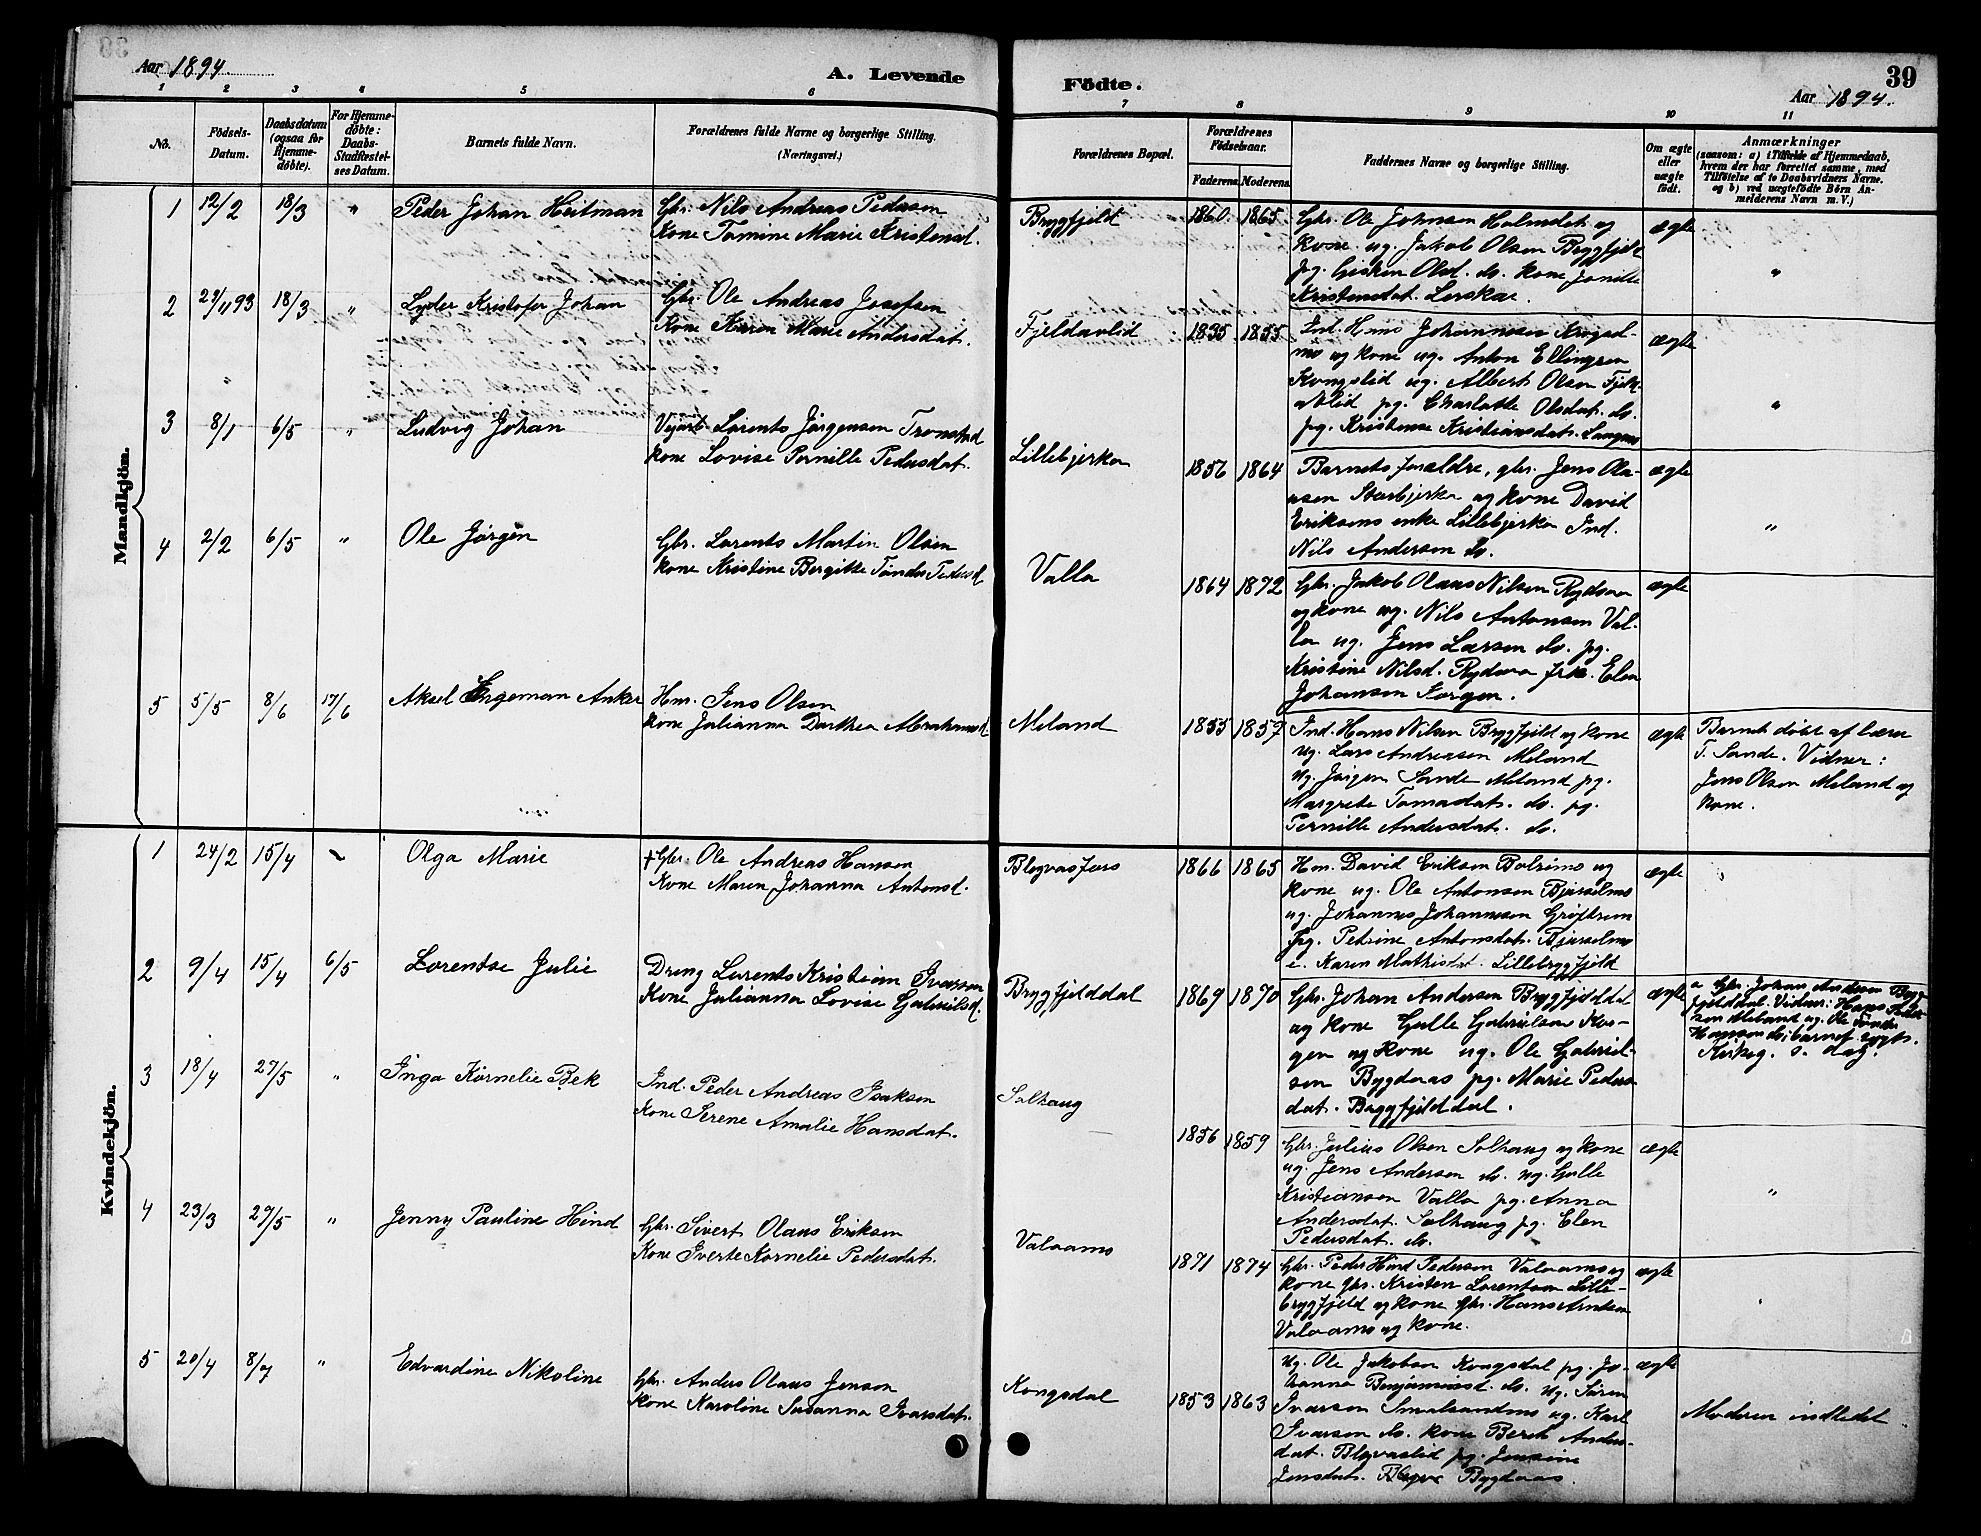 Aar 1894.
A. Levende
Födte.
39
Aar 1894.
1 2 3 4 5 6 7 8 9 10 11
No.
Födsels-
Datum.
Daabsdatum
(ogsaa for
Hjemme-
döbte).
For Hjemme-
döbte:
Daabs-
Stadfæstel-
ses Datum.
Barnets fulde Navn.
Forældrenes fulde Navne og borgerlige Stilling.
(Næringsvei.)
Forældrenes Bopæl.
Forældrenes
Födselsaar.
Faderens. Moderens.
Faddernes Navne og borgerlige Stilling.
Om ægte
eller
uægte
födt.
Anmærkninger
(saasom: a) i Tilfælde af Hjemmedaab,
hvem der har forrettet samme, med
Tilföielse af to Daabsvidners Navne.
og b) ved uægtefödte Börn An-
melderens Navn m.V.)
Mandkjön.
1 12/2 18/3 " Peder Johan Heitman
Gbr. Nils Andreas Pedersen
Kone Tomine Marie Kristensd.
Bryggfjeldt 1860. 1865
Gbr. Ole Johnsen Holmslet og
Kone ug. Jakob Olsen Bryggfjeldt
pg. Gisken Olsd. do. kone
Kristensdat. Lerskar.
ægte "
2 29/11 93 18/3 " Lyder Kristofer Johan
Gbr. Ole Andreas Josefsen
Kone Karen Marie Andersdat.
Fjeldavlid 1835 1855
Ind. Hans Johannesen
og kone ug. Anton Ellingsen
Kongslid ug. Albert Olsen Fjeld-
avlid pg. Charlotte Olsdat. do.
pg. Kristense Kristiansdat.
ægte "
3 8/1 6/5 " Ludvig Johan
Lorents Jørgensen
Kone Lovise Pernille Pedersdat.
Lillebjerka 1856 1864
Barnets forældre, gbr. Jens Ola-
usen Storbjerka og kone David
Eriksens enke Lillebjerka Ind.
Nils Andersen do.
ægte "
4 2/2 6/5 " Ole Jørgen
Gbr. Lorents Martin Olsen
Kone Kristine Bergitte Tønder Pedersd
Valla 1864 1872
Gbr. Jakob Olaus Nilsen Rydsaa
og kone ug. Nils Antonsen Val-
la ug. Jens Larsen do. pg.
Kristine Nilsd. frk. Elen
Johansen Forgen.
ægte
5 5/5 8/6 17/6 Aksel Engeman Anker
Hm. Jens Olsen
Kone Julianna Dorthea Abrahamsd
Meland 1855 1857
Ind. Hans Nilsen Bryggfjeld og kone
ug. Lars Andreasen Meland
ug. Jørgen Sande Meland pg.
Margrete Tomasdat. do. pg.
Pernille Andersdat. do.
ægte
Barnet døbt af lærer
T. Sande. Vidner:
Jens Olsen Meland og
kone.
Kvindekjön.
1 24/2 15/4 Olga Marie
+ Gbr. Ole Andreas Hansen
Kone Maren Johanna Antonsd.
Blegvasfors 1866 1865
Hm. David Eriksen og
kone ug. Ole Antonsen
ug. Johannes Johannesen
pg. Petrine Antonsdat.
e. Karen Mathisdat. Lillebryggfjeld
ægte
2 9/4 15/4 6/5 Lorentse Julie
Dreng Lorents Kristian Ivarsen
Kone Julianna Lovise Gabrielsd.
Brygfjelddal 1869 1870
Gbr. Johan Andersen Bryggfjelddal
og kone Gulle Gabrielsen Kor-
gen og kone ug. Ole Gabriel-
sen Bygdaas pg. Marie Peders-
dat. Bryggfjelddal.
ægte
a Gbr. Johan Andersen Bryg-
fjelddal. Vidner: Hans
Meland ug. Ole Tønder
barnef.
Kirkeg. s. dag.
3 18/4 27/5 " Inga Kornelie Bek
Ind. Peder Andreas Isaksen
Kone Serene Amalie Hansdat.
Solhaug 1856 1859
Gbr. Julius Olsen Solhaug og kone
ug. Jens Andersen do. ug. Gulle
Kristiansen Valla pg. Anna
Andersdat. Solhaug pg. Elen
Pedersdat. do.
ægte "
4 23/3 27/5 " Jenny Pauline Hind
Gbr. Sivert Olaus Eriksen
Kone Sverte Kornelie Pedersdat.
Valaams 1871 1874
Gbr. Peder Hind Pedersen Valaams og
kone gbr. Kristen Lorentsen Lille-
bryggfjeld og kone gbr. Hans Arntsen
Valaams og kone.
ægte
5 20/4 8/7 " Edvardine Nikoline
Gbr. Anders Olaus Jensen
Kone Karoline Susanna Ivarsdat.
Kongsdal 1853 1863
ug. Ole Jakobsen Kongsdal pg. Jo-
hanna Benjaminsd. do. ug. Søren
Ivarsen Smalsundmo ug. Karl
Ivarsen do. kone Beret Anders-
dat. Blegvaslid pg. Jensine
Jensdat. Bygdaas.
ægte
Moderen indledet